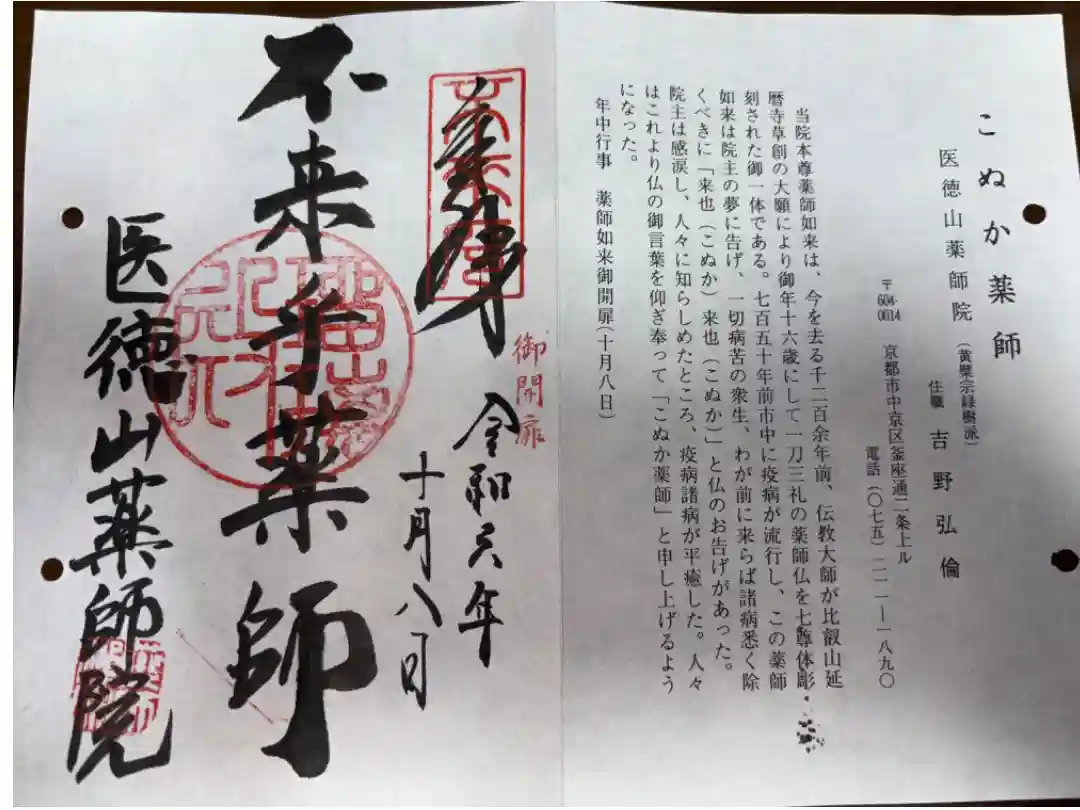 こぬか薬師
医徳山薬師院
(黄檗宗緑樹派)
住職 吉野弘倫
〒604-0014 京都市中京区釜座通二条上ル
電話(〇七五)二一一―一八九〇
当院本尊薬師如来は、今を去る千二百余年前、伝教大師が比叡山延
暦寺草創の大願により御年十六歳にして一刀三礼の薬師仏を七尊体彫
刻された御一体である。七百五十年前市中に疫病が流行し、この薬師
如来は院主の夢に告げ、一切病苦の衆生、わが前に来らば諸病悉く除
くべきに「来也(こぬか)来也(こぬか)」と仏のお告げがあった。
院主は感涙し、人々に知らしめたところ、疫病諸病が平癒した。人々
はこれより仏の御言葉を仰ぎ奉って「こぬか薬師」と申し上げるよう
になった。
年中行事 薬師如来御開扉(十月八日)
奉拝
御開扉
令和六年
十月八日
不来乎薬師
医徳山薬師院